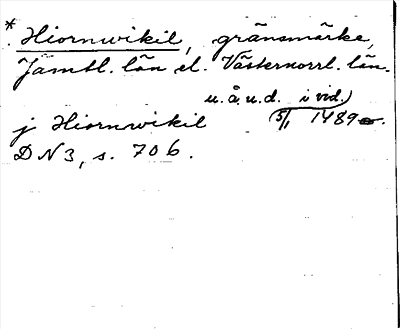 * Hiornwikil, gränsmärke,
Jämtl. län el. Västernorrl. län.
u. å. u. d. i vid.
j Hiornwikil (5/1 1489).
DN 3, s. 706.